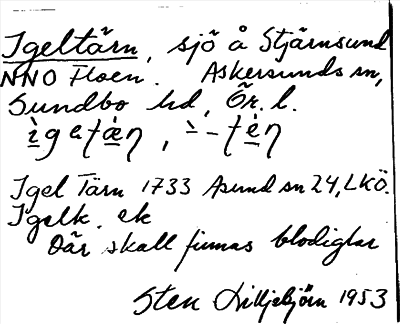 Igeltärn, sjö å Stjärnsund
NNO Floen. Askersunds sn,
Sundbo hd, Ör. l.
ìgətæ̀η, ̀-tèη
Igel Tärn 1733 Asund sn 24, LKÖ.
Igelk. ek
Där skall finnas blodiglar
Sten Lilljebjörn 1953